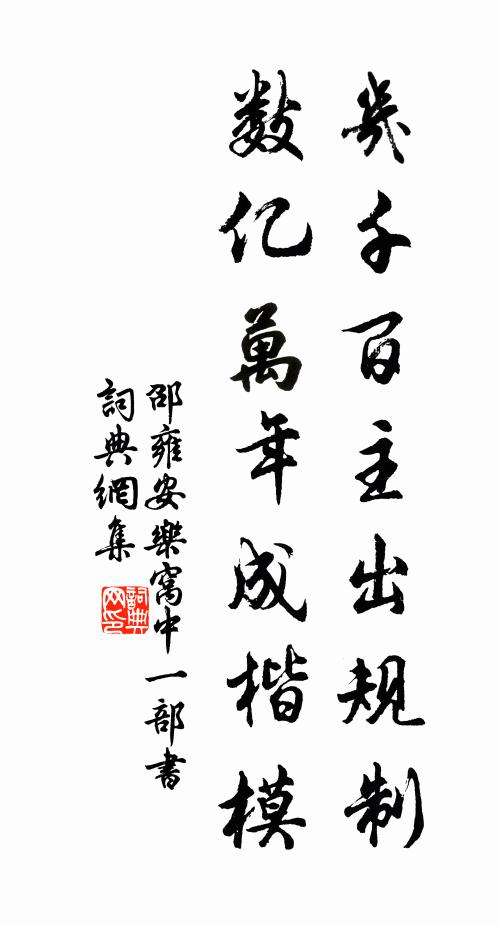 幾千百主出規制
数亿萬年成楷模
邵雍安樂窩中一部書
詞典網集
詞典网印